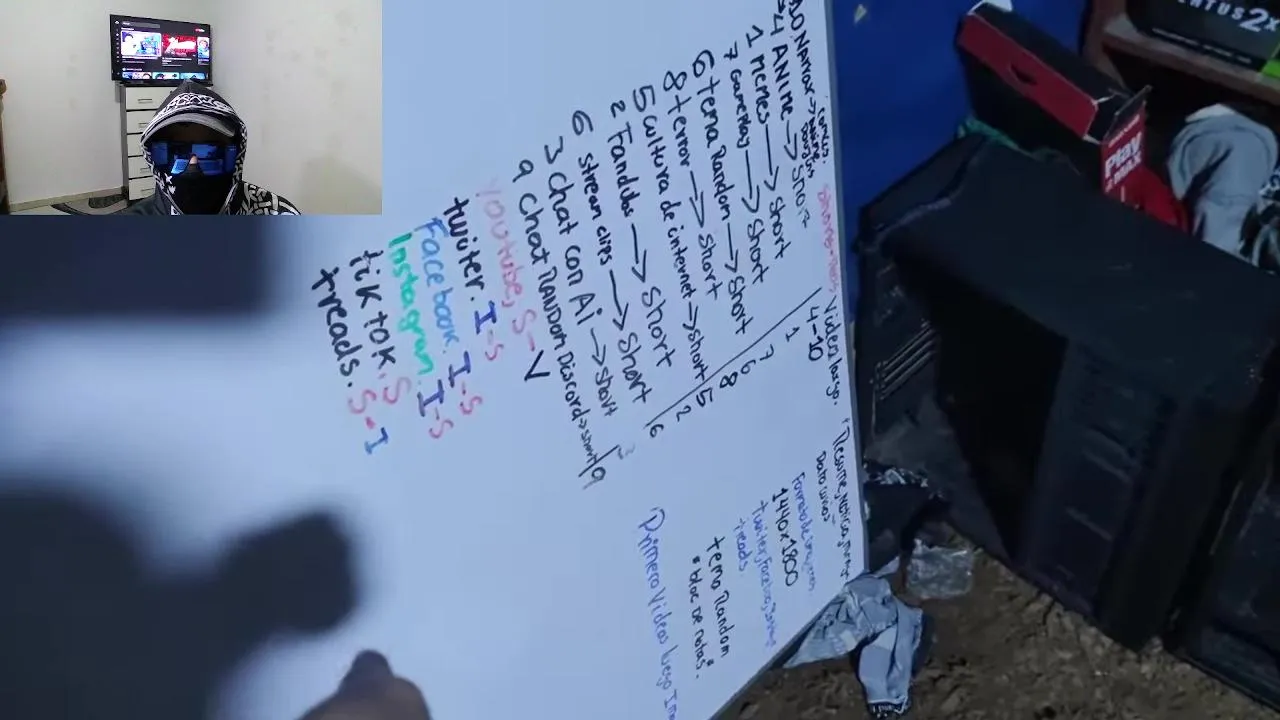 10 Narrar
4 ANIME → Short
1 MEMES → Short
7 Gameplay → Short
6 tema Random → Short
8 terror → Short
5 cultura de internet → short
2 Fandubs → Short
6 stream clips → Short
3 chat con Ai → short
9 chat RANDOM Discord → short
Video largo.
4-10
1
7
6
8
5
2
6
9
Youtube, S-V
twiter. I-S
Facebook. I-S
Instagram. I-S
tik tok. S
treads. S-I
Formato de imagenes
1440x1800
treads.
tema Random
*bloc de notas*.
Primero Videos luego
Play